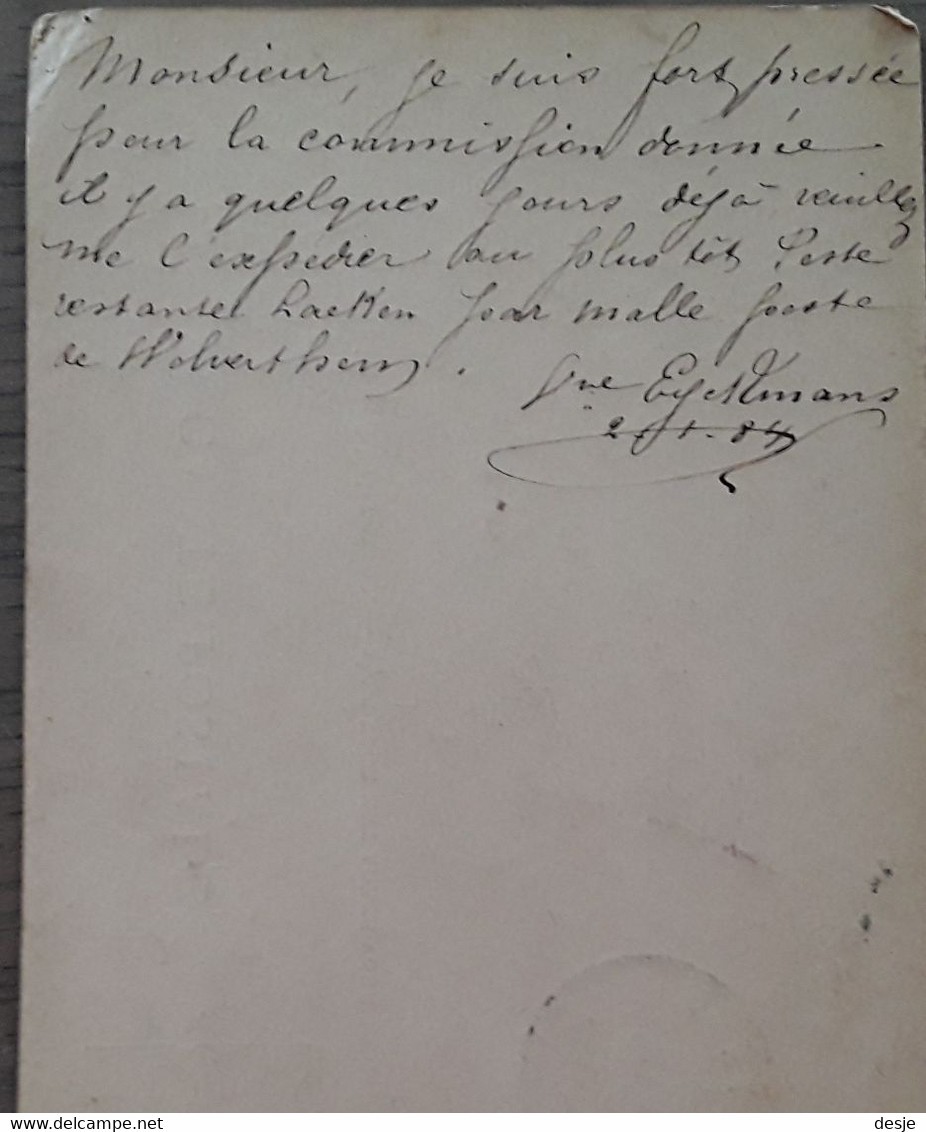 Monsieur, je suis fort pressée
pour la commission donnée
il y a quelques jours déjà veuillez
me l'expédier au plus tôt Poste
restante Laeken par malle poste
de Wolverthem.
Vve Eyckmans
2-1-84
www.delcampe.net
desje